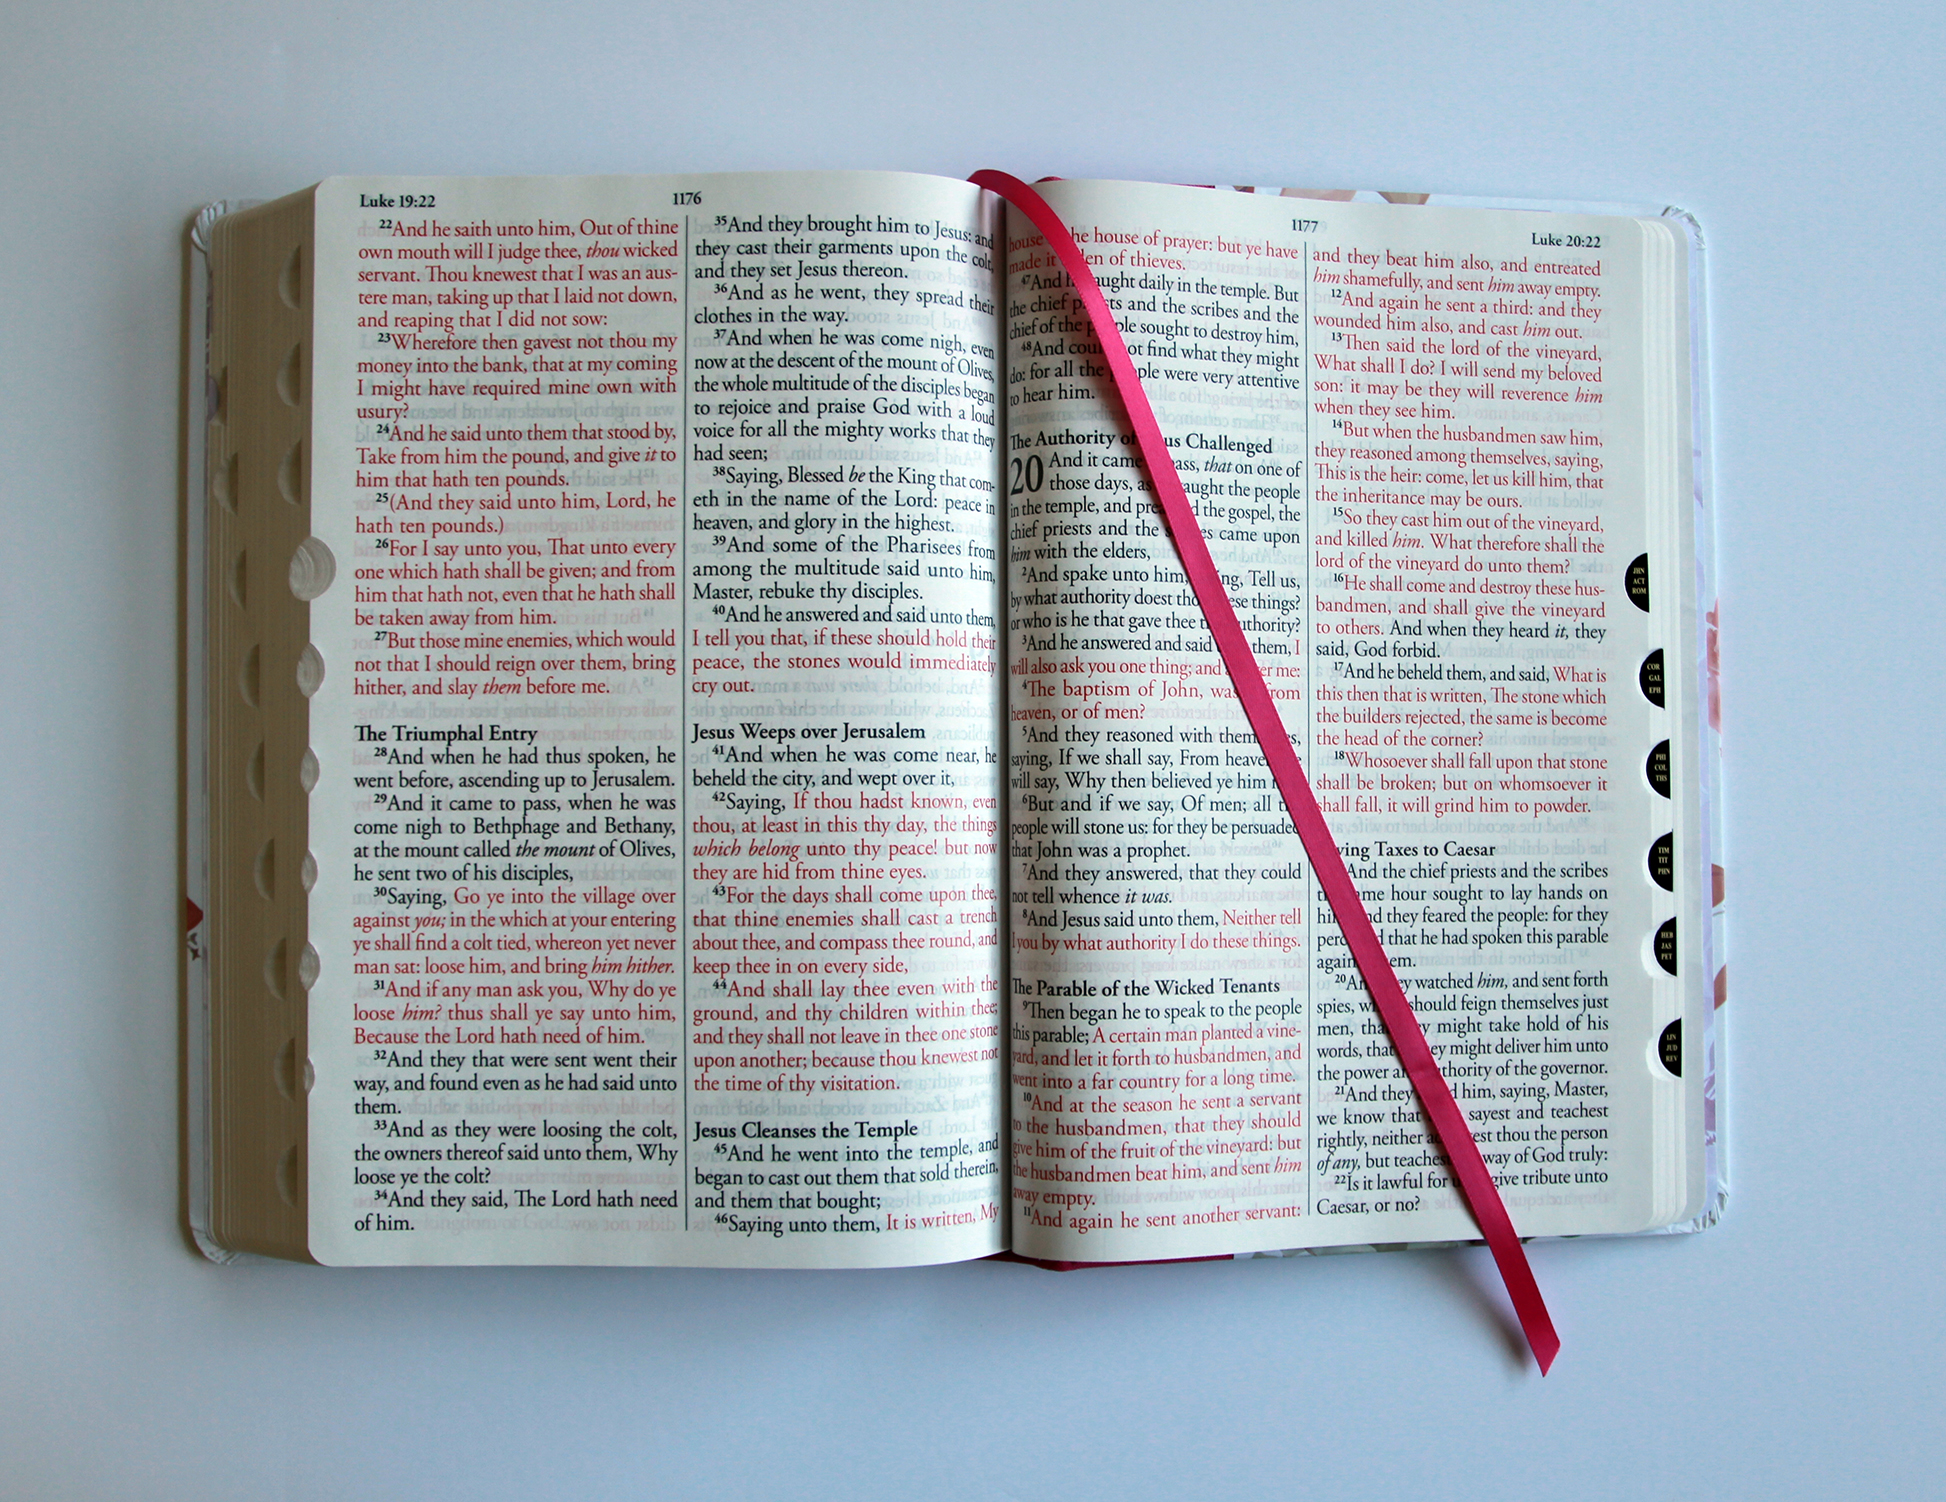 Luke 19:22
1176
22And he saith unto him, Out of thine
own mouth will I judge thee, thou wicked
servant. Thou knewest that I was an aus-
tere man, taking up that I laid not down,
and reaping that I did not sow:
23Wherefore then gavest not thou my
money into the bank, that at my coming
I might have required mine own with
usury?
24And he said unto them that stood by,
Take from him the pound, and give it to
him that hath ten pounds.
25(And they said unto him, Lord, he
hath ten pounds.)
26For I say unto you, That unto every
one which hath shall be given; and from
him that hath not, even that he hath shall
be taken away from him.
27But those mine enemies, which would
not that I should reign over them, bring
hither, and slay them before me.
The Triumphal Entry
28And when he had thus spoken, he
went before, ascending up to Jerusalem.
29And it came to pass, when he was
come nigh to Bethphage and Bethany,
at the mount called the mount of Olives,
he sent two of his disciples,
30Saying, Go ye into the village over
against you; in the which at your entering
ye shall find a colt tied, whereon yet never
man sat: loose him, and bring him hither.
31And if any man ask you, Why do ye
loose him? thus shall ye say unto him,
Because the Lord hath need of him.
32And they that were sent went their
way, and found even as he had said unto
them.
33And as they were loosing the colt,
the owners thereof said unto them, Why
loose ye the colt?
34And they said, The Lord hath need
of him.
35And they brought him to Jesus: and
they cast their garments upon the colt,
and they set Jesus thereon.
36And as he went, they spread their
clothes in the way.
37And when he was come nigh, even
now at the descent of the mount of Olives,
the whole multitude of the disciples began
to rejoice and praise God with a loud
voice for all the mighty works that they
had seen;
38Saying, Blessed be the King that com-
eth in the name of the Lord: peace in
heaven, and glory in the highest.
39And some of the Pharisees from
among the multitude said unto him,
Master, rebuke thy disciples.
40And he answered and said unto them,
I tell you that, if these should hold their
peace, the stones would immediately
cry out.
Jesus Weeps over Jerusalem
41And when he was come near, he
beheld the city, and wept over it,
42Saying, If thou hadst known, even
thou, at least in this thy day, the things
which belong unto thy peace! but now
they are hid from thine eyes.
43For the days shall come upon thee,
that thine enemies shall cast a trench
about thee, and compass thee round, and
keep thee in on every side,
44And shall lay thee even with the
ground, and thy children within thee;
and they shall not leave in thee one stone
upon another; because thou knewest not
the time of thy visitation.
Jesus Cleanses the Temple
45And he went into the temple, and
began to cast out them that sold therein,
and them that bought;
46Saying unto them, It is written, My
1177
Luke 20:22
house the house of prayer: but ye have
made it den of thieves.
47And taught daily in the temple. But
the chief priests and the scribes and the
chief of the people sought to destroy him,
48And could not find what they might
do: for all the people were very attentive
to hear him.
The Authority of Jesus Challenged
20 And it came pass, that on one of
those days, as taught the people
in the temple, and the gospel, the
chief priests and the came upon
him with the elders,
2And spake unto him, Tell us,
by what authority doest these things?
or who is he that gave thee authority?
3And he answered and said them, I
will also ask you one thing; and me:
4The baptism of John, was from
heaven, or of men?
5And they reasoned with
saying, If we shall say, From
will say, Why then believed ye him
6But and if we say, Of men; all
people will stone us: for they be persuaded
that John was a prophet.
7And they answered, that they could
not tell whence it was.
8And Jesus said unto them, Neither tell
I you by what authority I do these things.
The Parable of the Wicked Tenants
9Then began he to speak to the people
this parable; A certain man planted a vine-
yard, and let it forth to husbandmen, and
went into a far country for a long time.
10And at the season he sent a servant
to the husbandmen, that they should
give him of the fruit of the vineyard: but
the husbandmen beat him, and sent him
away empty.
11And again he sent another servant:
and they beat him also, and entreated
him shamefully, and sent him away empty.
12And again he sent a third: and they
wounded him also, and cast him out.
13Then said the lord of the vineyard,
What shall I do? I will send my beloved
son: it may be they will reverence him
when they see him.
14But when the husbandmen saw him,
they reasoned among themselves, saying,
This is the heir: come, let us kill him, that
the inheritance may be ours.
15So they cast him out of the vineyard,
and killed him. What therefore shall the
lord of the vineyard do unto them?
16He shall come and destroy these hus-
bandmen, and shall give the vineyard
to others. And when they heard it, they
said, God forbid.
17And he beheld them, and said, What is
this then that is written, The stone which
the builders rejected, the same is become
the head of the corner?
18Whosoever shall fall upon that stone
shall be broken; but on whomsoever it
shall fall, it will grind him to powder.
Taxes to Caesar
And the chief priests and the scribes
hour sought to lay hands on
and they feared the people: for they
that he had spoken this parable
against them.
20And they watched him, and sent forth
spies, should feign themselves just
men, that might take hold of his
words, that they might deliver him unto
the power authority of the governor.
21And they him, saying, Master,
we know that sayest and teachest
rightly, neither thou the person
of any, but teachest way of God truly:
22Is it lawful for give tribute unto
Caesar, or no?
JHN
ACT
ROM
COR
GAL
EPH
PHI
COL
THS
TIM
TIT
PHN
HEB
JAS
PET
1JN
JUD
REV